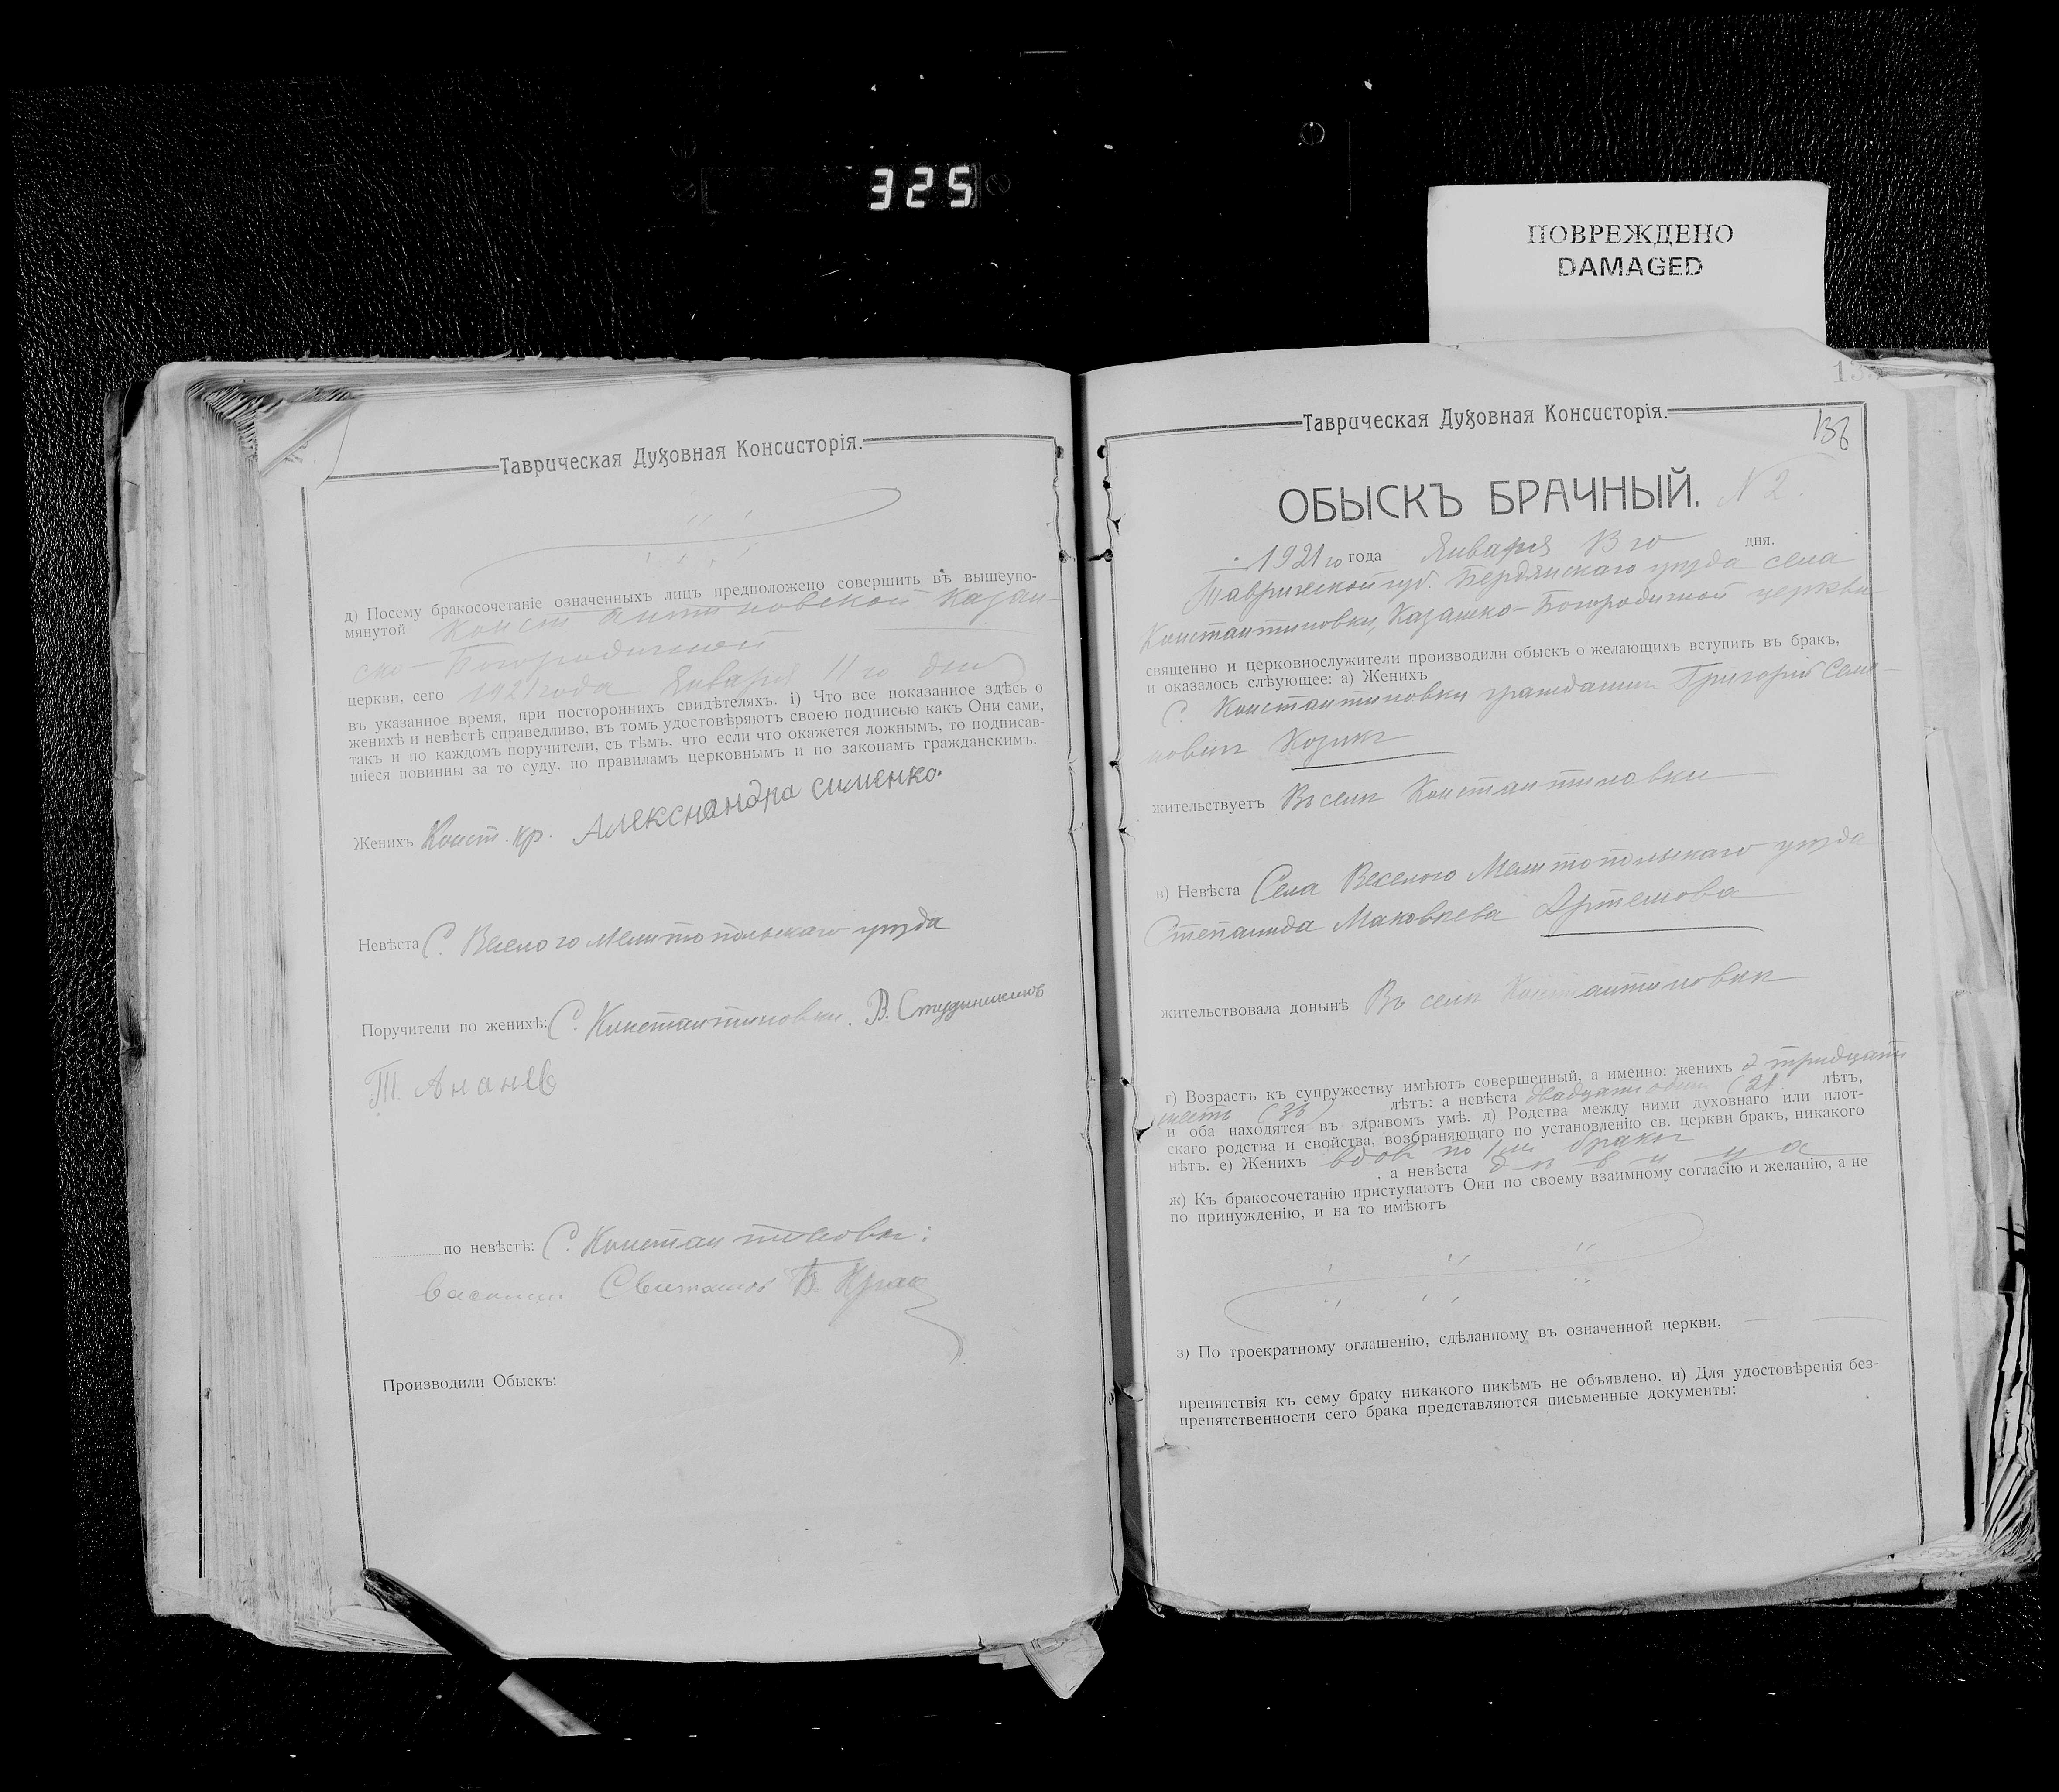 325
ПОВРЕЖДЕНО
DAMAGED
Таврическая Духовная Консисторія.
д) Посему бракосочетаніе означенныхъ лицъ предположено совершить въ вышеупо-
мянутой Константиновской Казан-
ско-Богородичной
церкви, сего 1921 года Января 11го дня
въ указанное время, при постороннихъ свидѣтеляхъ. і) Что все показанное здѣсь о
женихѣ и невѣстѣ справедливо, въ томъ удостовѣряютъ своею подписью какъ Они сами,
такъ и по каждомъ поручители, съ тѣмъ, что если что окажется ложнымъ, то подписав-
шіеся повинны за то суду, по правиламъ церковнымъ и по законамъ гражданскимъ.
Женихъ Конст. кр. Александра Сименко.
Невѣста С. Веселого Мелитопольскаго уѣзда
Поручители по женихѣ: С. Константиновки. В.
Т. Ананев
по невѣстѣ: С. Константиновки:
Производили Обыскъ:
Таврическая Духовная Консисторія.
138
ОБЫСКЪ БРАЧНЫЙ. N 2.
1921го года Января 13го дня.
Таврической губ. Бердянскаго уѣзда села
Константиновки, Казанско-Богородичной церкви
священно и церковнослужители производили обыскъ о желающихъ вступить въ бракъ,
и оказалось слѣующее: а) Женихъ
С. Константиновки гражданинъ Григорій Семе-
новичъ Козикъ
жительствуетъ Въ селѣ Константиновки
в) Невѣста Села Веселого Мелитопольскаго уѣзда
Степанида Маковѣева Артемова
жительствовала донынѣ Въ селѣ Константиновки
г) Возрастъ къ супружеству имѣютъ совершенный, а именно: женихъ тридцати
шесть (36) лѣтъ: а невѣста двадцати один (21 лѣтъ,
и оба находятся въ здравомъ умѣ. д) Родства между ними духовнаго или плот-
скаго родства и свойства, возбраняющаго по установленію св. церкви бракъ, никакого
нѣтъ. е) Женихъ вдовъ по 1мъ бракѣ
, а невѣста дѣвица
ж) Къ бракосочетанію приступаютъ Они по своему взаимному согласію и желанію, а не
по принужденію, и на то имѣютъ
з) По троекратному оглашенію, сдѣланному въ означенной церкви,
препятствія къ сему браку никакого никѣмъ не объявлено. и) Для удостовѣренія без-
препятственности сего брака представляются письменные документы: